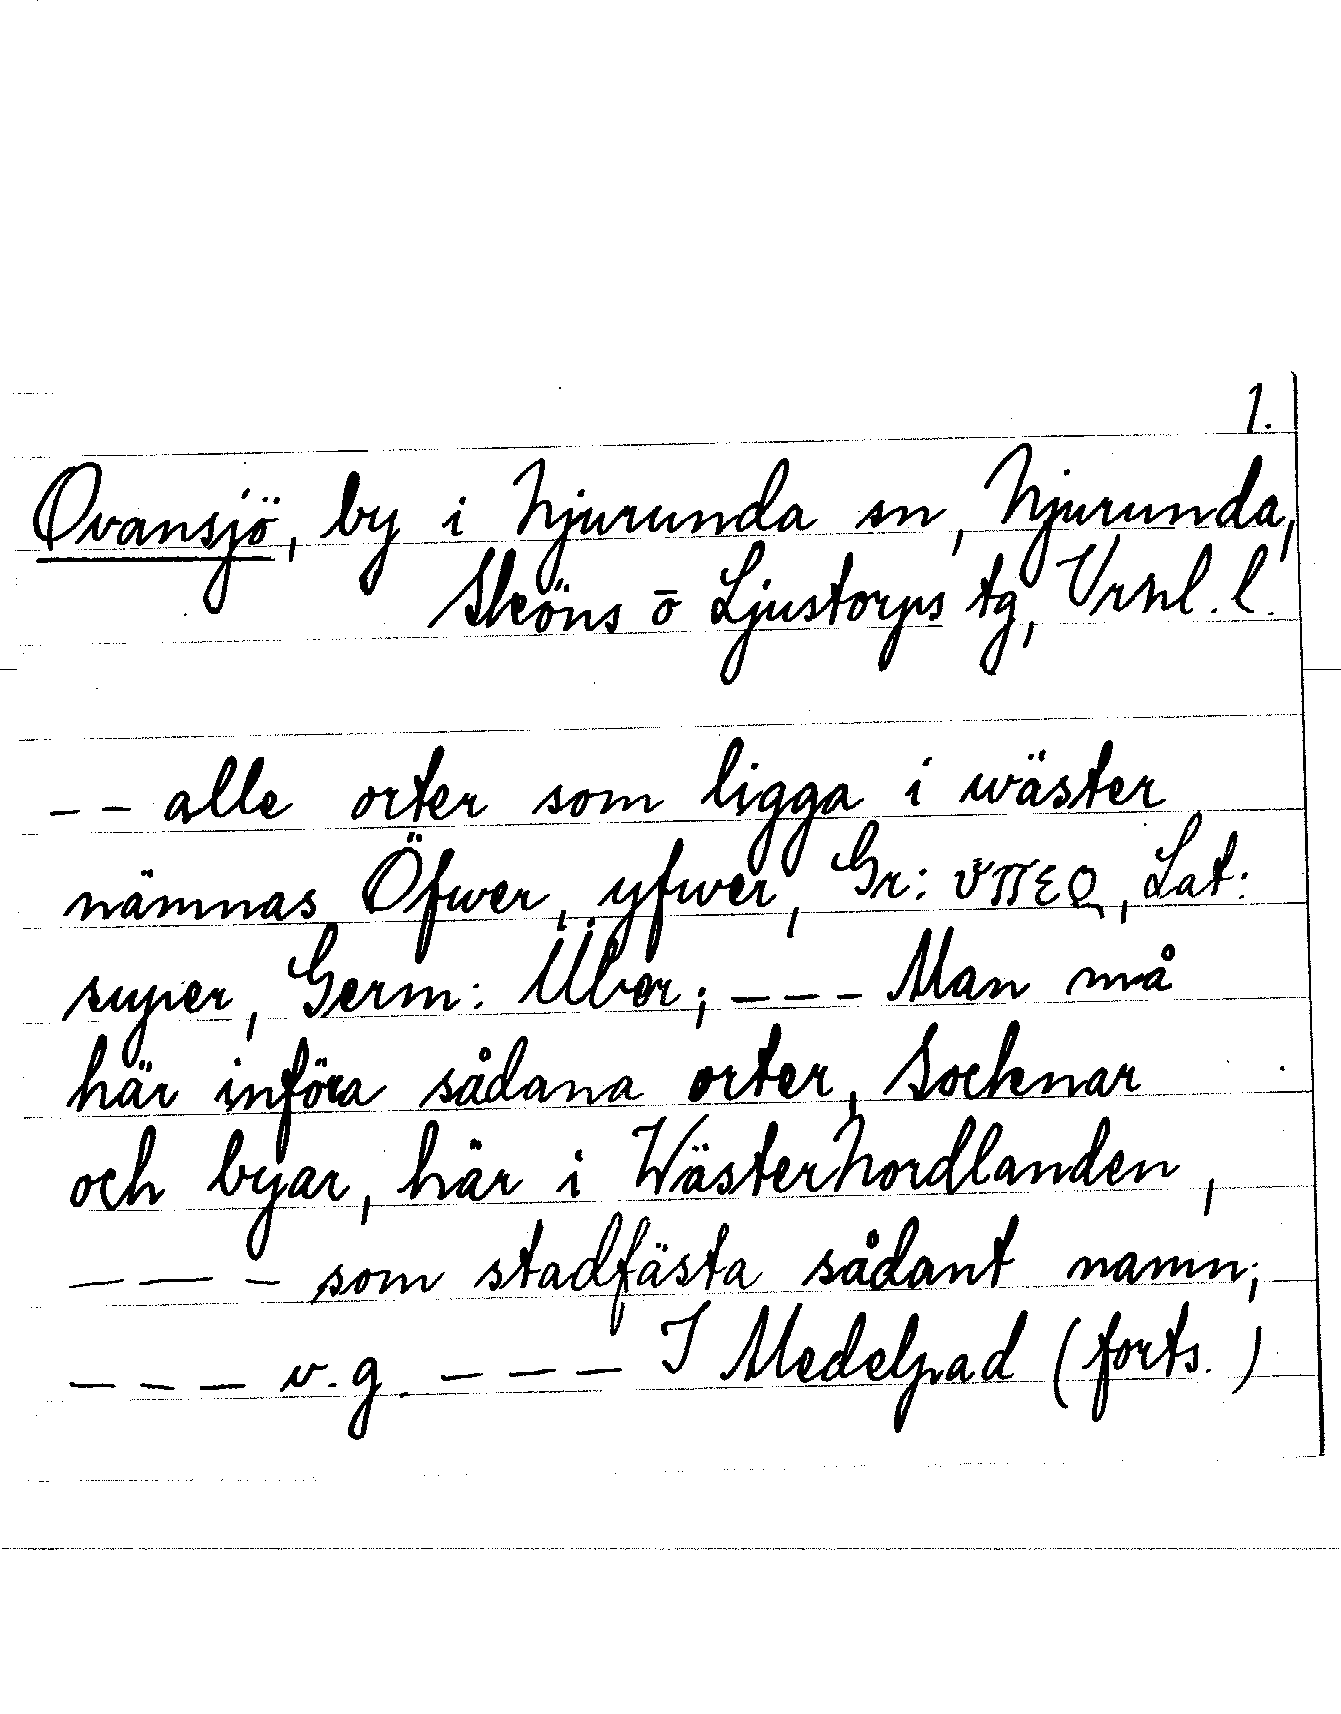 1.
Ovansjö, by i Njurunda sn, Njurunda,
Sköns o Ljustorps tg, Vrnl. l.
-- alle orter som ligga i wäster
nämnas Öfwer, yfwer, Gr: ὑπερ, Lat:
super, Germ: Über; --- Man må
här införa sådana orter, Socknar
och byar, här i Wästernordlanden,
--- som stadfästa sådant namn;
--- v.g. --- I Medelpad (forts.)